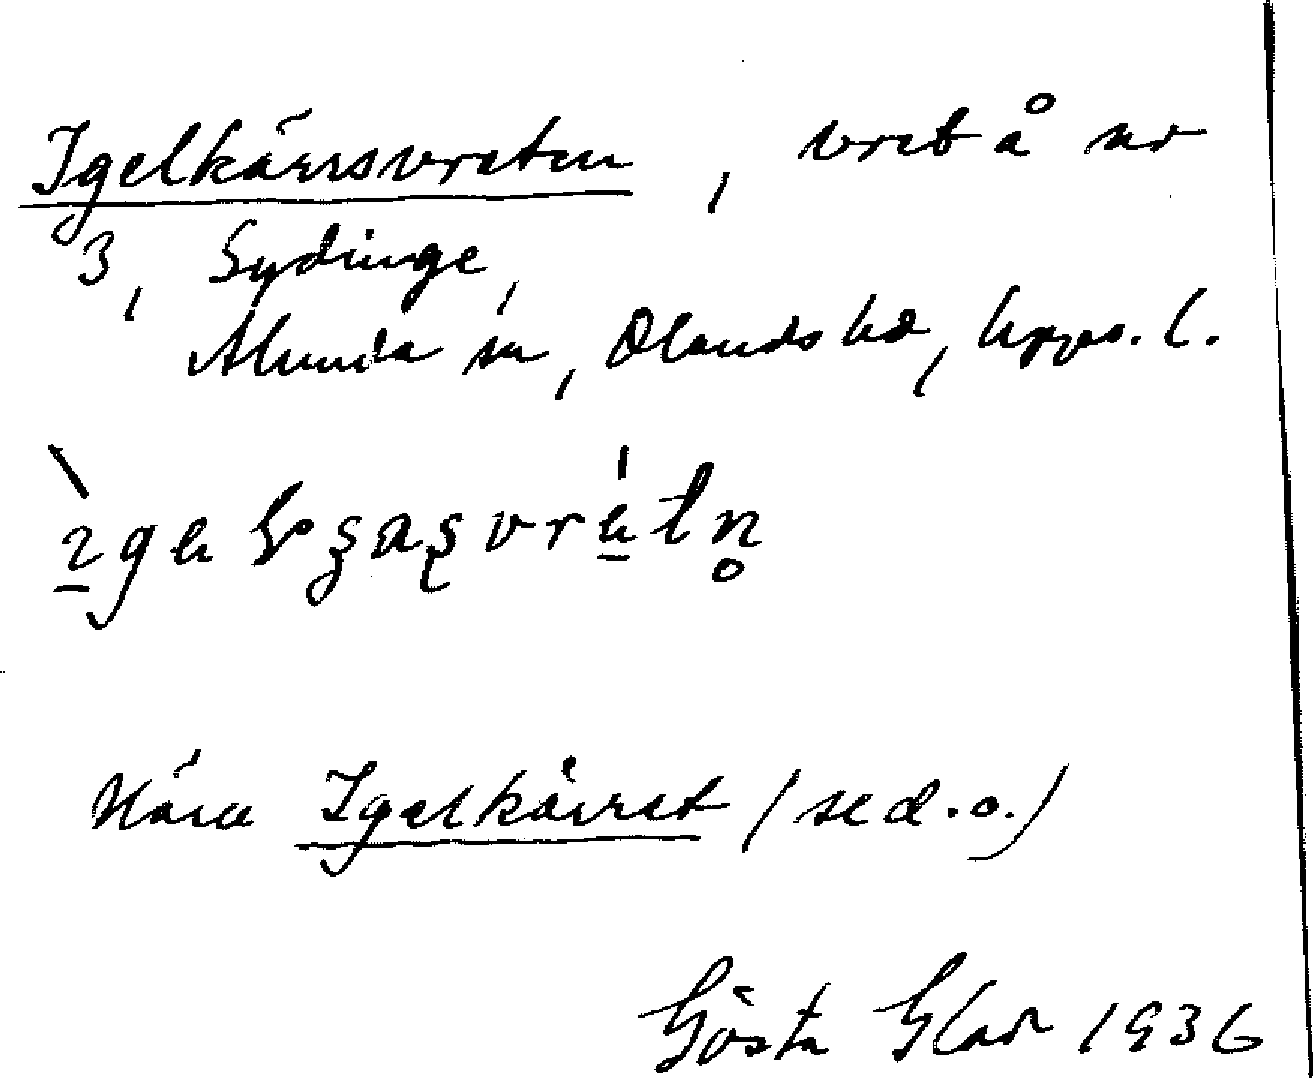 Igelkärrsvreten, vret å nr
3, Sydinge,
Alunda sn, Olands hd, Upps. l.
Nära Igelkärret (se d. o.)
Gösta Glad 1936